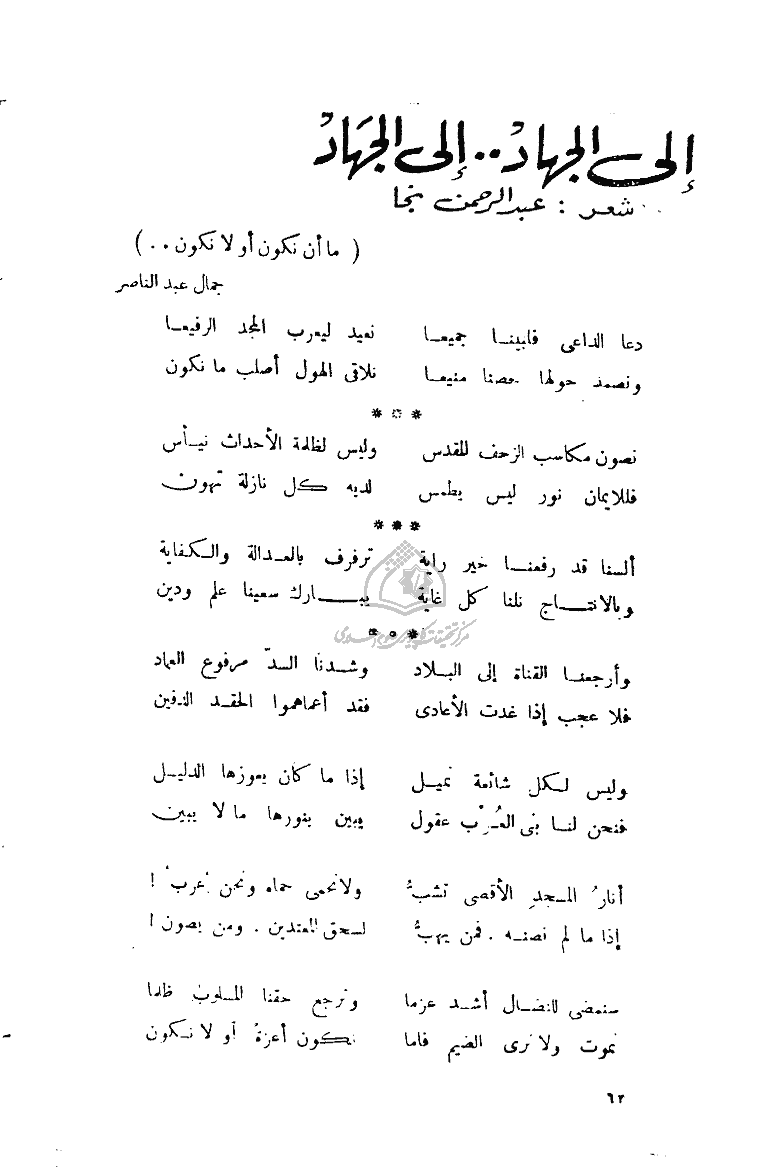 إلى الجهاد .. إلى الجهاد
شعر : عبد الرحمن نجا
( ما أن نكون أو لا نكون . . )
جمال عبد الناصر
دعا الداعى فلبينا جميعا نعيد ليعرب المجد الرفيعا
ونصمد حولها حصنا منيعا نلاقى الهول أصلب ما نكون
* * *
نصون مكاسب الزحف المقدس وليس لظلمة الأحداث نيأس
فللايمان نور ليس يطمس لديه كل نازلة تهون
* * *
ألسنا قد رفعنا خير راية ترفرف بالعدالة والكفاية
وبالانتاج نلنا كل غاية يبارك سعينا علم ودين
* * *
وأرجعنا القناة إلى البلاد وشدنا السدّ مرفوع العماد
فلا عجب إذا غدت الأعادى فقد أعماهموا الحقد الدفين
وليس لكل شائعة نميل إذا ما كان يعوزها الدليل
فنحن لنا بنى العُرْب عقول يبين بنورها ما لا يبين
أنارُ المسجدِ الأقصى تشبُّ ولا نحمى حماه ونحن عرب !
إذا ما لم نصنه . فمن يهبُّ لسحق المعتدين . ومن يصون !
سنمضى للنضال أشد عزما ونرجع حقنا المسلوب ظلما
نموت ولا نرى الضيم فاما نكون أعزةً أو لا نكون
٦٢